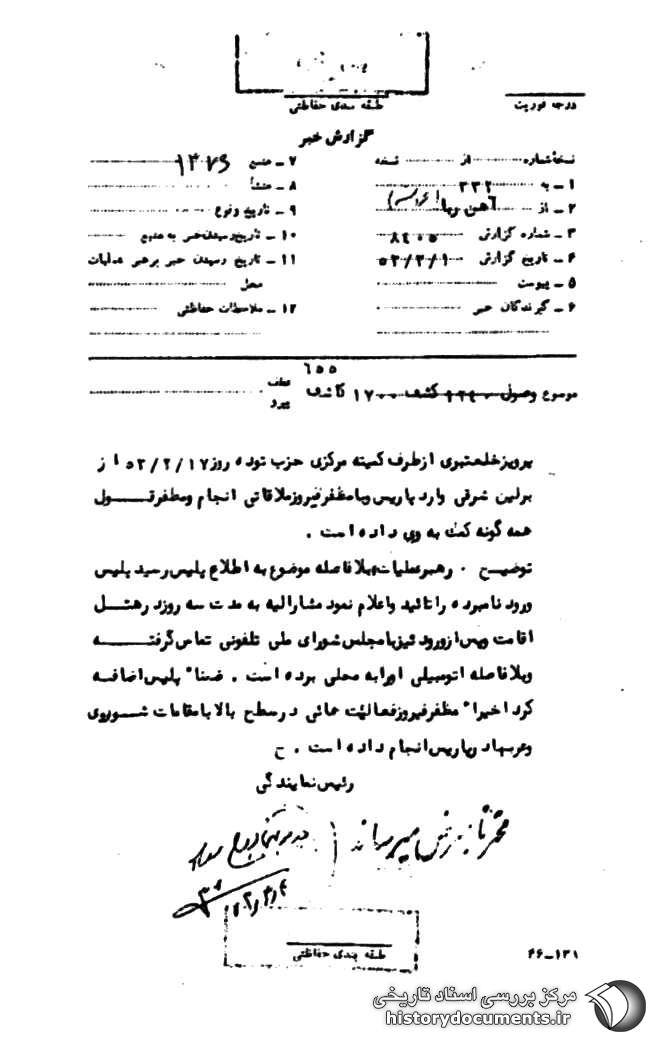 طبقه بندی حفاظتی
درجه فوریت
گزارش خبر
نسخهٔ شماره از نسخه
۱ ـ به ۳۳۲
۲ ـ از آهن ربا
۳ ـ شماره گزارش ۸۴۰۵
۴ ـ تاریخ گزارش ۵۳/۳/۱
۵ ـ پیوست
۶ ـ گیرندگان خبر
۷ ـ منبع ۱۳۷۶
۸ ـ منشأ
۹ ـ تاریخ وقوع
۱۰ ـ تاریخ رسیدن خبر به منبع
۱۱ ـ تاریخ رسیدن خبر برهبر عملیات
محل
۱۲ ـ ملاحظات حفاظتی
۶۵۵
موضوع وصولی ۱۷۰۰ کاشف
عطف
پیرو
پرویز خلعتبری از طرف کمیته مرکزی حزب توده روز ۵۳/۲/۱۷ از
برلین شرقی وارد پاریس و با مظفر فیروز ملاقاتی انجام و مظفر قول
همه گونه کمک به وی داده است .
توضیح . رهبر عملیات بلافاصله موضوع به اطلاع پلیس رسید پلیس
ورود نامبرده را تائید و اعلام نمود مشارالیه به مدت سه روز در هتل
اقامت و پس از ورود نیز با مجلس شورای ملی تلفونی تماس گرفته
و بلافاصله اتومبیلی او را به محلی برده است . ضمنا" پلیس اضافه
کرد اخیرا" مظفر فیروز فعالیت هائی در سطح بالا با مقامات شوروی
و عربها در پاریس انجام داده است . ح
رئیس نمایندگی
محترماً بعرض میرساند
طبقه بندی حفاظتی
۱۳۱ـ۴۶
مرکز بررسی اسناد تاریخی
historydocuments.ir